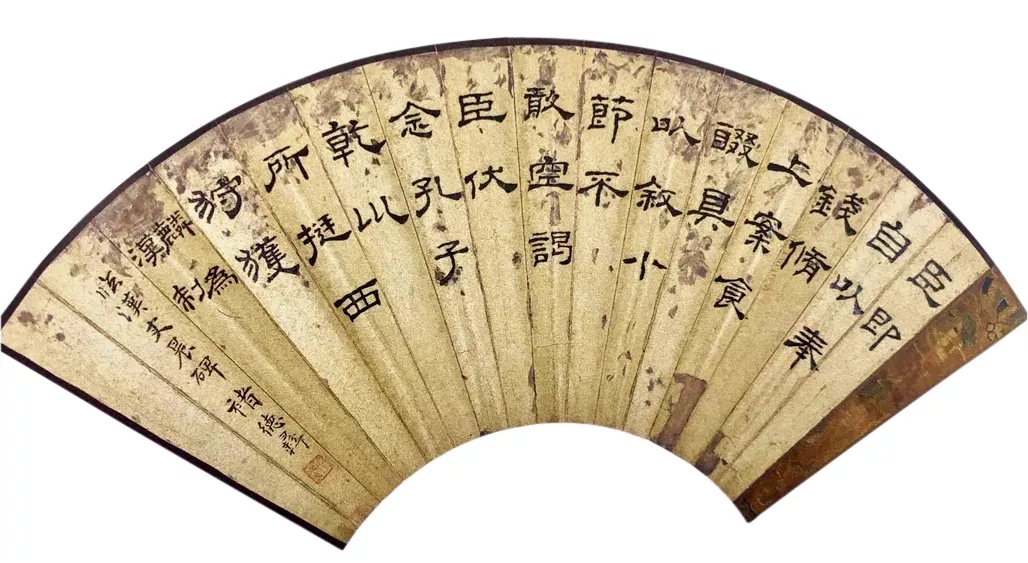 臣即
自以奉
錢脩
上案食
醊具
以叙小
節不
敢空謁
臣伏
念孔子
乾巛
所挺西
狩獲
麟為
漢制
法漢史晨碑 褚德彝